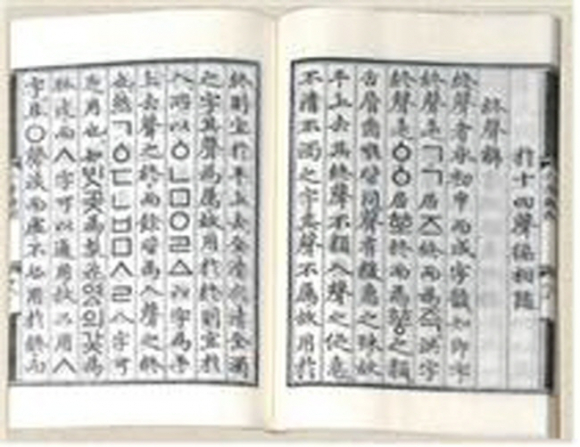 於十四聲徧相隨
終聲解
終聲者承初中而成字韻如即字
終聲是ㄱㄱ居즈終而爲즉洪字
終聲是ㆁㆁ居ᅘᅩ終而爲ᅘᅩᆼ之類
舌脣齒喉皆同聲有緩急之殊故
平上去其終聲不類入聲之促急
不淸不濁之字其聲不厲故用於
終則宜於平上去全淸次淸全濁
之字其聲爲厲故用於終則宜於
入所以ㆁㄴㅁㅇㄹㅿ六字爲平
上去聲之終而餘皆爲入聲之終
也然ㄱㆁㄷㄴㅂㅁㅅㄹ八字可
足用也如ᄇᆡᆺ곶爲梨花여ᇫ의갗爲
狐皮而ㅅ字可以通用故只用ㅅ
字且ㅇ聲淡而虛不必用於終而